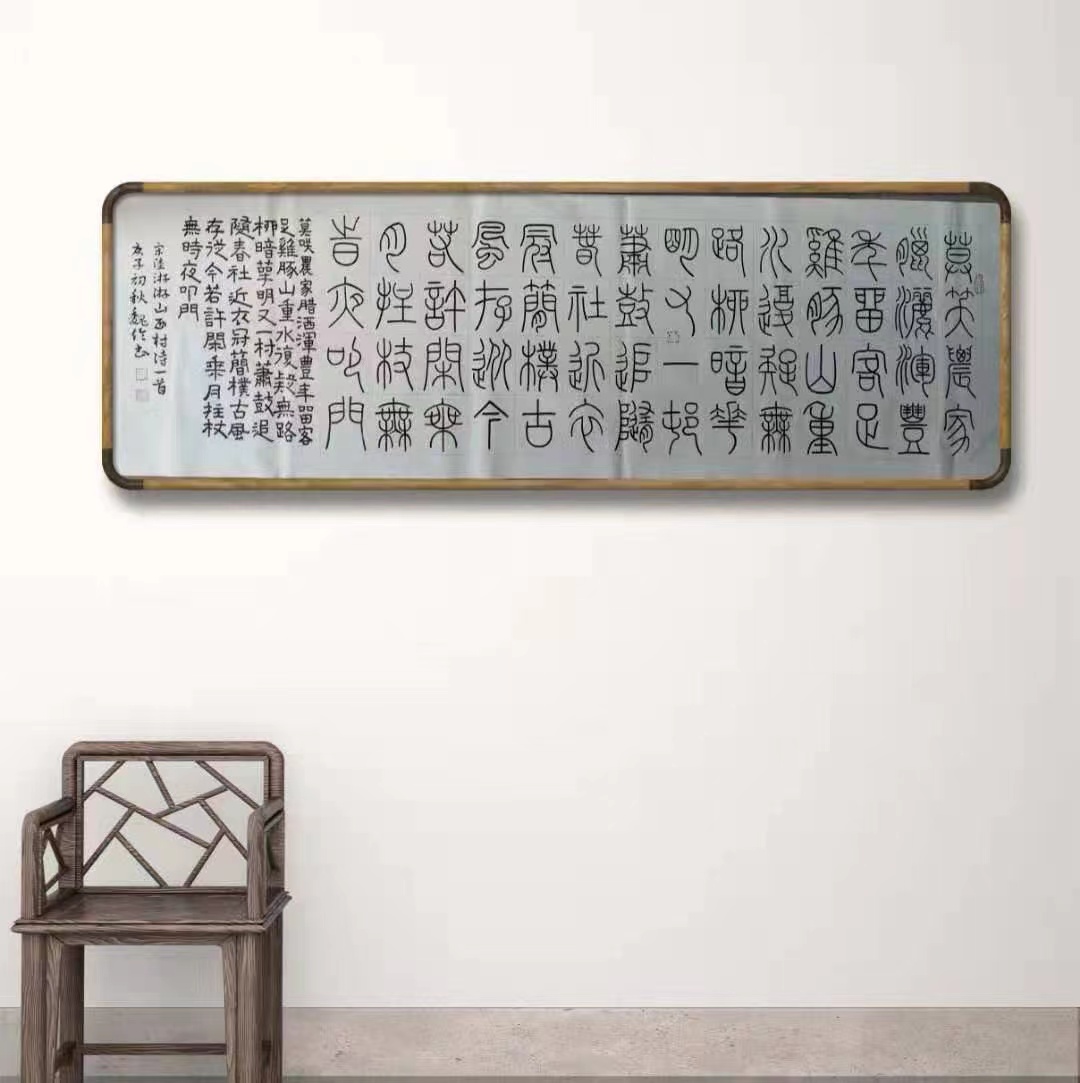 莫笑農家
臘酒渾豐
年留客足
雞豚山重
水復疑無
路柳暗華
明又一邨
蕭鼓追隨
春社近衣
冠簡樸古
風存從今
若許閑乘
月拄杖無
時夜叩門
莫咲農家腊酒渾豊年留客
足雞豚山重水復疑無路
柳暗華明又一村蕭鼓追
隨春社近衣冠簡樸古風
存從今若許閑乘月拄杖
無時夜叩門
宋陸游游山西村诗一首
庚子初秋魏书